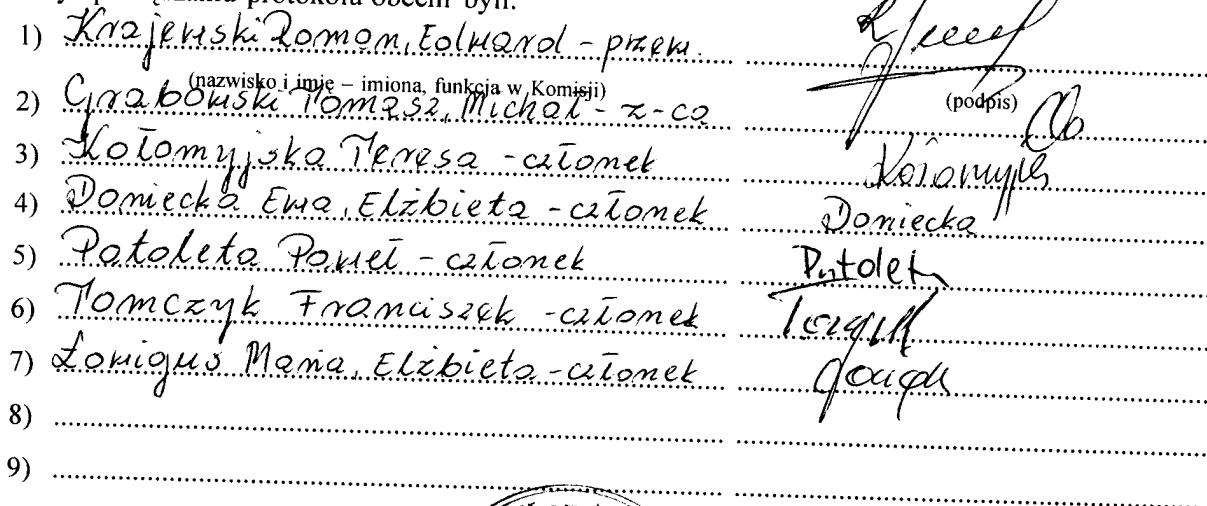 protokołu obecni byli:
1) Krajewski Roman, Edward - przew.
(nazwisko i imię – imiona, funkcja w Komisji) (podpis)
2) Grabowski Tomasz, Michał - z-ca
3) Kołomyjska Teresa - członek
4) Doniecka Ewa, Elżbieta - członek Doniecka
5) Patoleta Paweł - członek Patoleta
6) Tomczyk Franciszek - członek
7) Maria, Elżbieta - członek
8)
9)